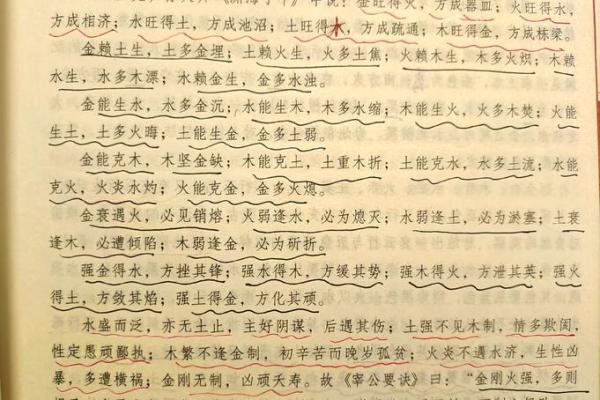 方成相济；水旺得土，方成池沼；土旺得木，方成疏通；木旺得金，方成栋梁。
金赖土生，土多金埋；土赖火生，火多土焦；火赖木生，木多火炽；木赖
水生，水多木漂；水赖金生，金多水浊。
金能生水，水多金沉；水能生木，木多水缩；木能生火，火多木焚；火能
生土，土多火晦；土能生金，金多土弱。
金能克木，木坚金缺；木能克土，土重木折；土能克水，水多土流；水能
克火，火炎水灼；火能克金，金多火熄。
金衰遇火，必见销熔；火弱逢水，必为熄灭；水弱逢土，必为淤塞；土衰
逢木，必遭倾陷；木弱逢金，必为斫折。
强金得水，方挫其锋；强水得木，方缓其势；强木得火，方泄其英；强火
得土，方敛其焰；强土得金，方化其顽。
水盛而泛，亦无土止，主好阴谋，后遇其伤；土强不见木制，情多欺闵，
性定愚顽鄙执；木繁不逢金制，初辛苦而晚岁孤贫；火炎不遇水济，生性凶
暴，多遭横祸；金刚无制，凶顽夭寿。故《宰公要诀》曰：“金刚火强，多则